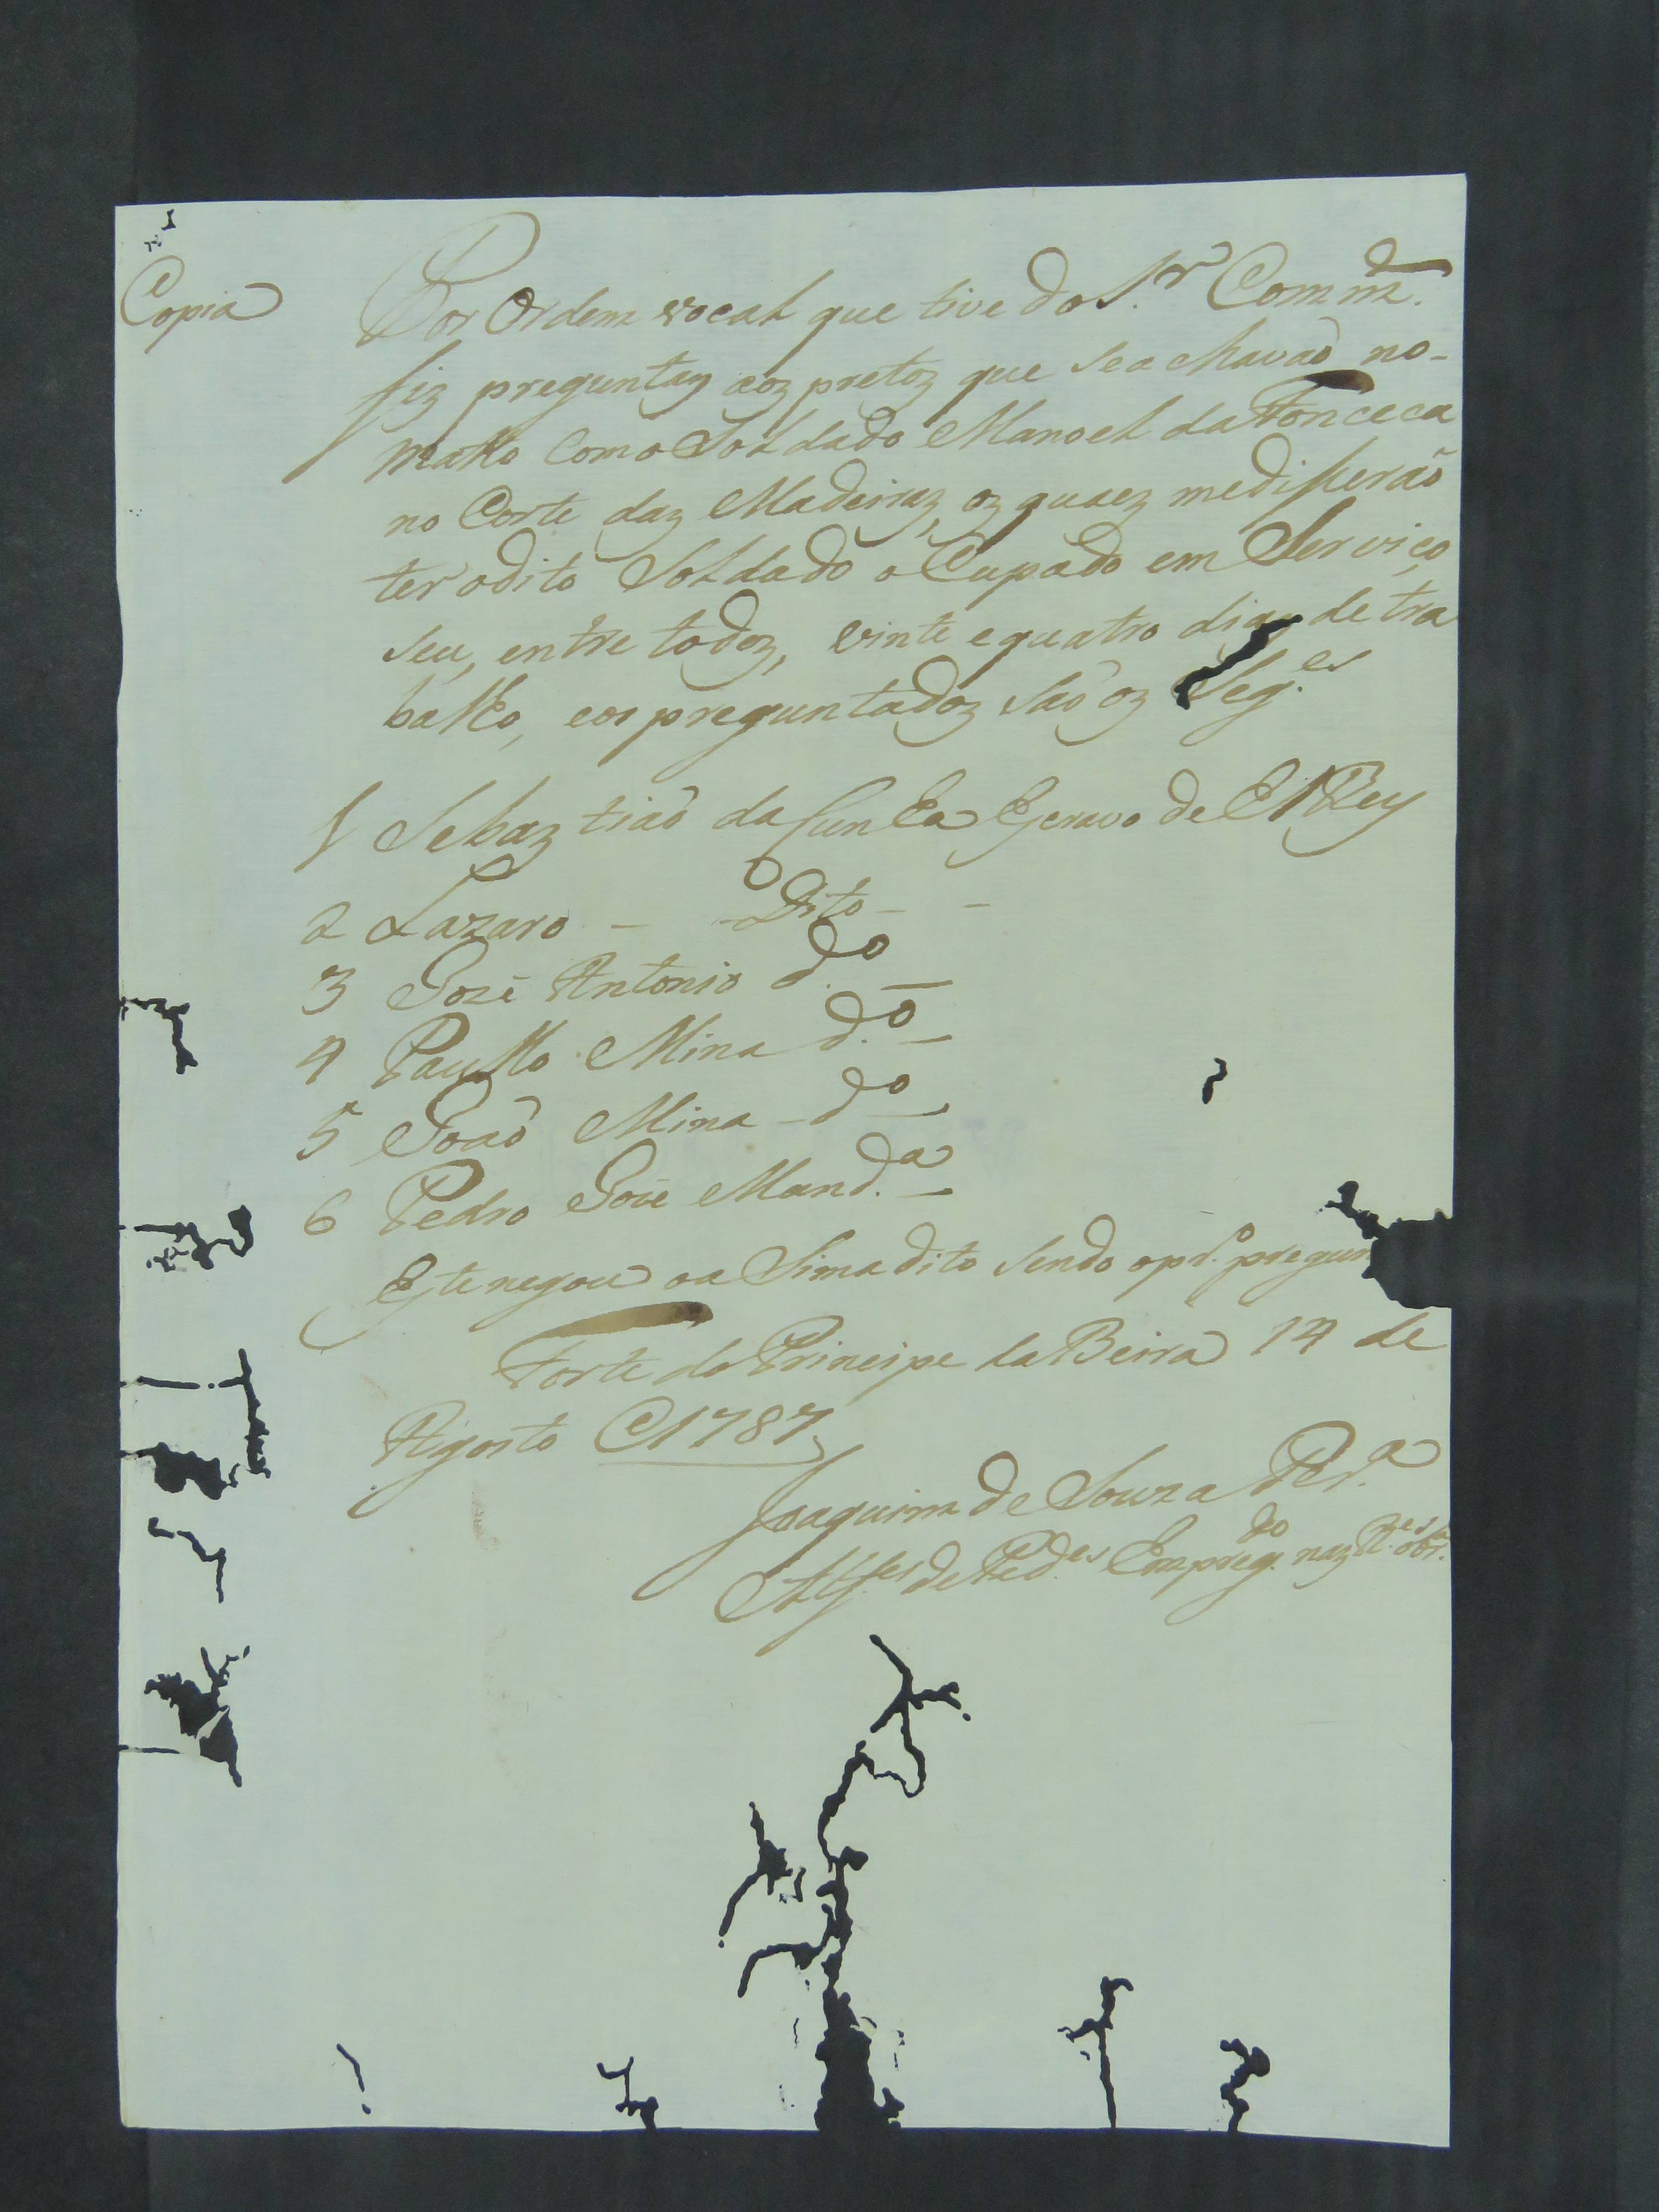 Copia
Por Ordem vocal que tive do S.r Comm.de
fiz preguntaz aoz pretoz que se achavaõ no-
matto com o Soldado Manoel da Fonceca
no Corte daz Madeiraz, oz quaez me disseraõ
ter o dito Soldado o Cupado em Serviço
seu, entre todoz, vinte e quatro diaz de tra
balho, e os preguntadoz saõ oz Seg.es
1 Sebaztiaõ da Cunha Escravo de El Rey
2 Lazaro - - Dito - -
3 Jozé Antonio d.o -
4 Paullo Mina d.o -
5 Joaõ Mina - d.o -
6 Pedro Jozé Mand.a -
Este negou o a Sima dito sendo o pr.o pregun
Forte do Principe da Beira 14 de
Agosto @ 1787
Joaquim de Souza Per.a
Alf.es de Ped.es Empreg.do naz R.es obr.